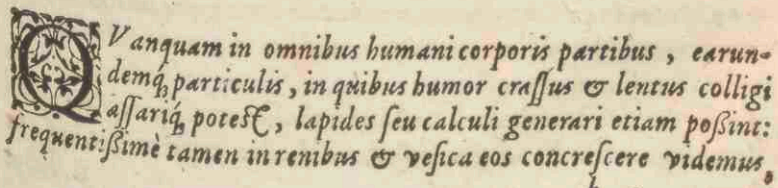 QVanquam in omnibus humani corporis partibus, earun-
demq́ꝫ particulis, in quibus humor craſſus & lentus colligi
aſſariq́ꝫ poteſt, lapides ſeu calculi generari etiam poßint:
frequentißimè tamen in renibus & veſica eos concreſcere videmus,